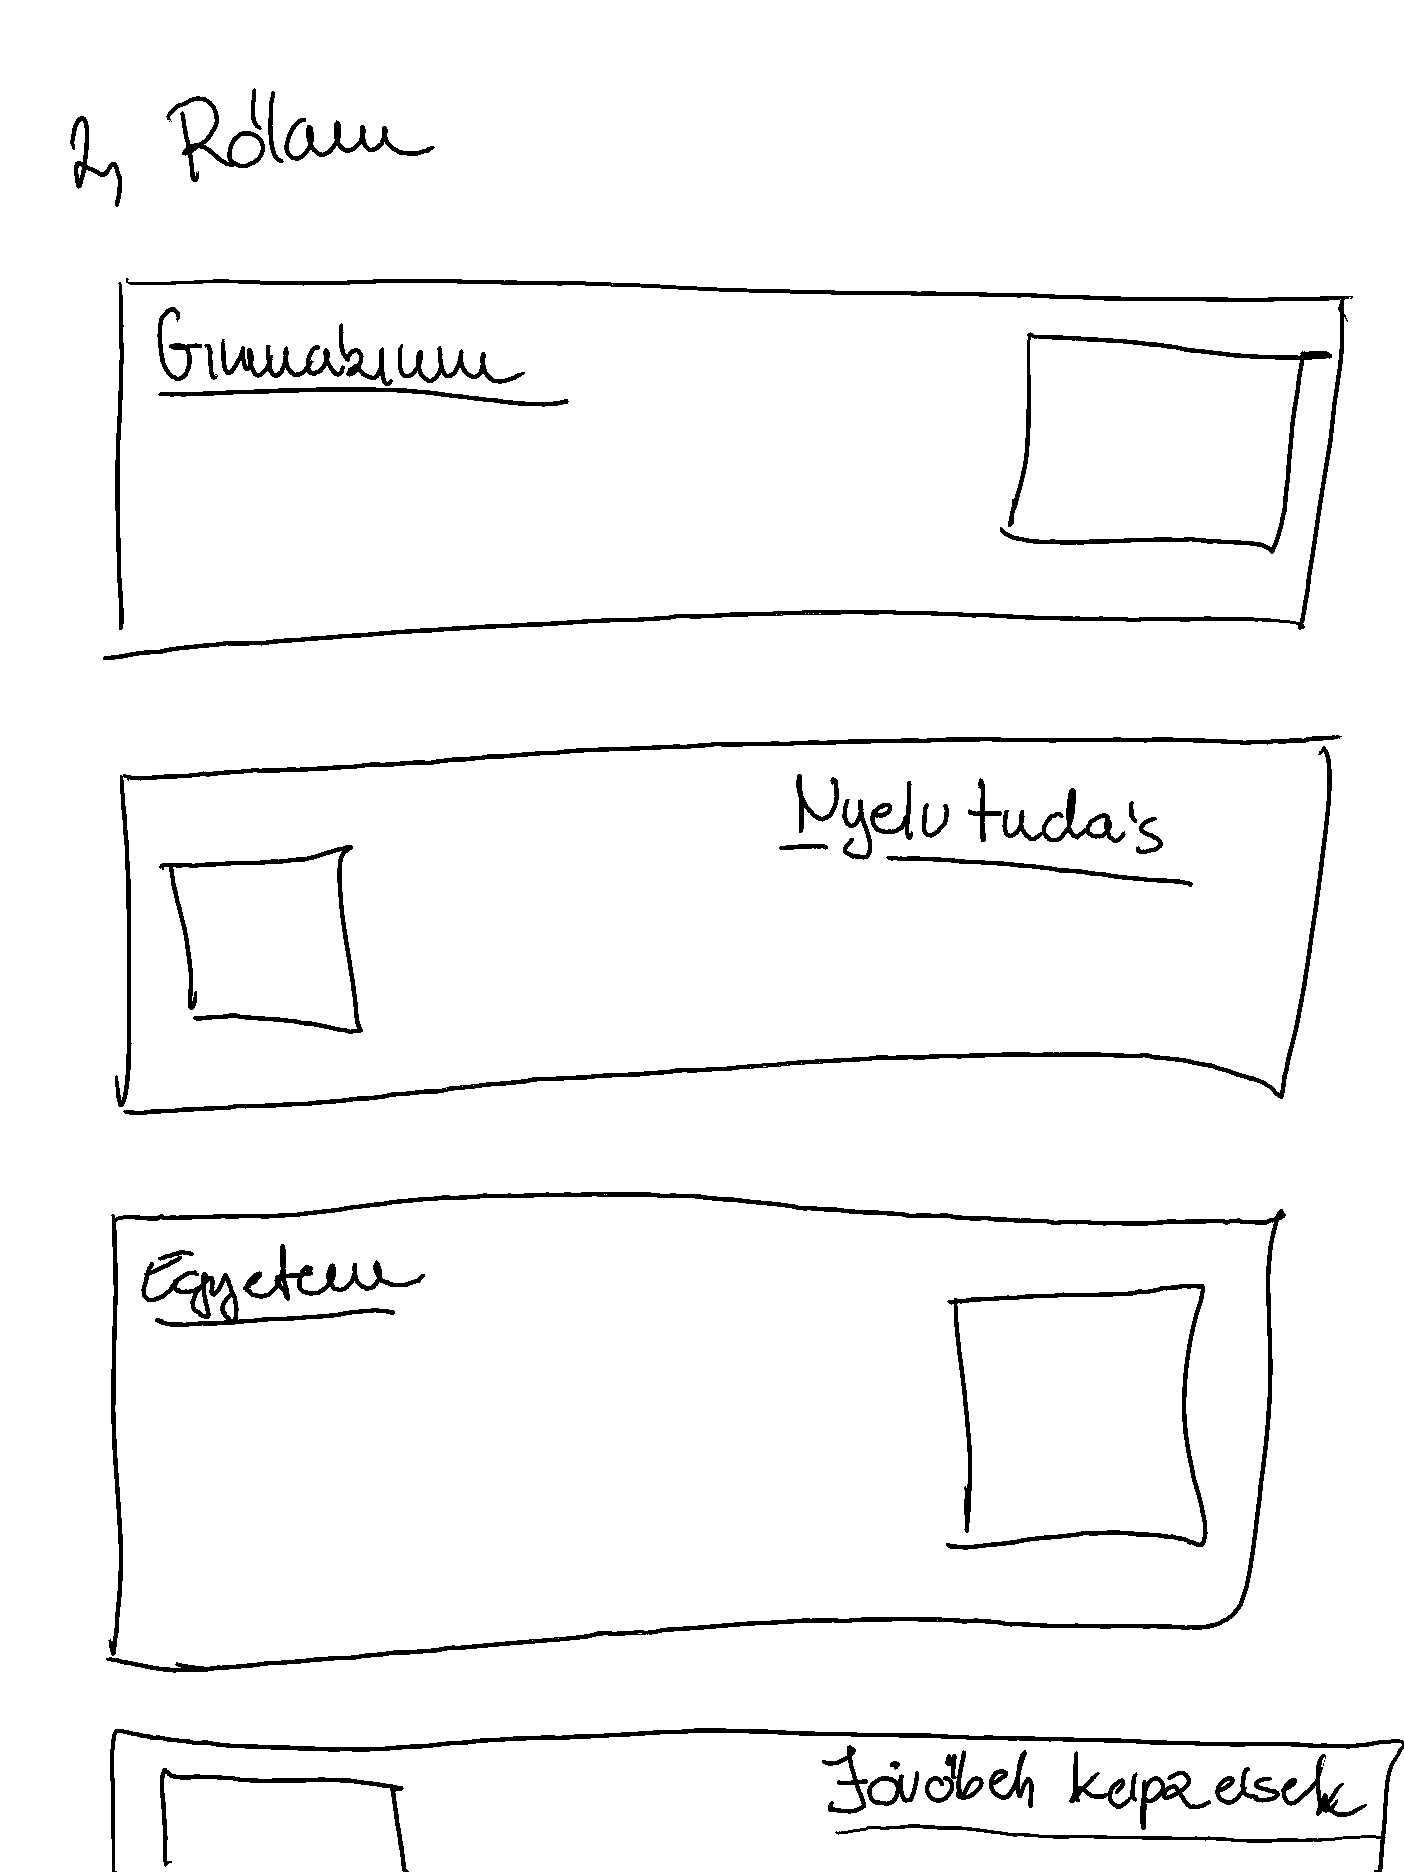 2, Rőlam
Gimnazium
Nyelv tudás
Egyetem
Jövőbeli kepzesek